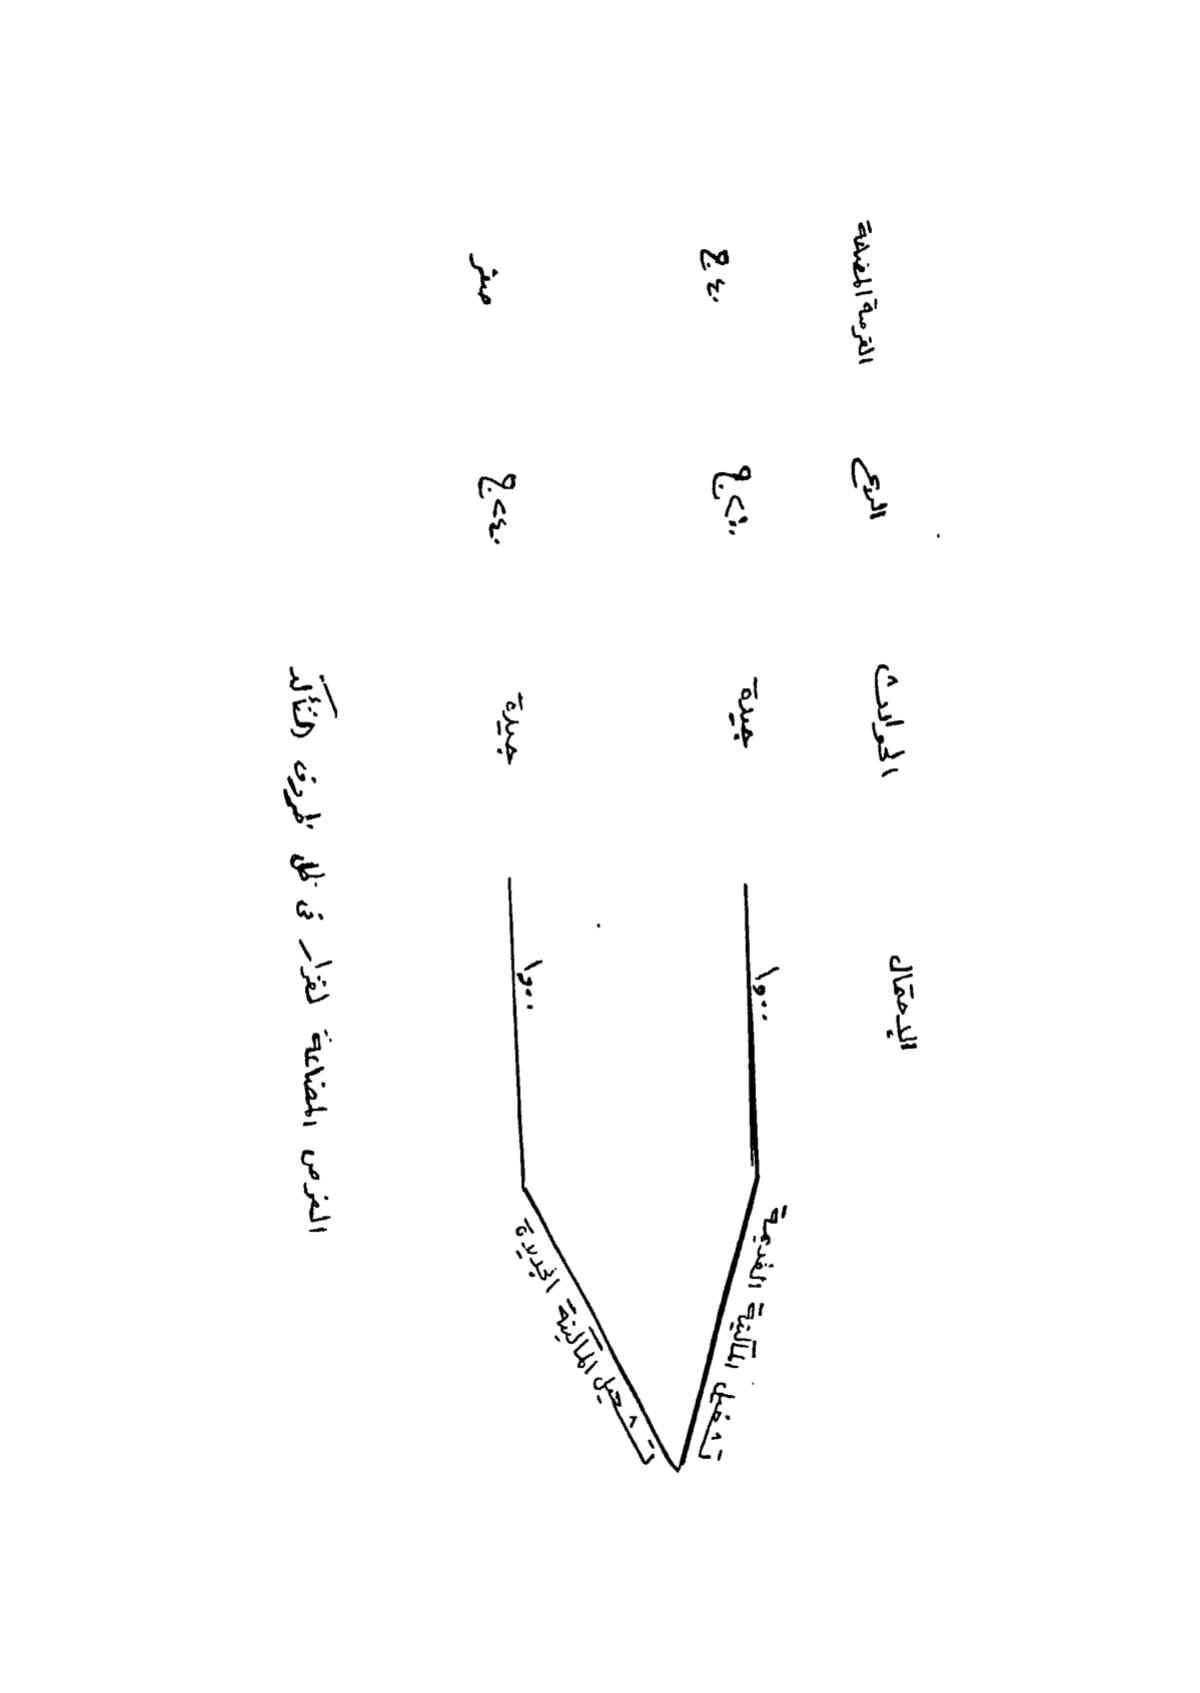 الاحتمال الحوادث الربح الفرصة المضاعة
تشغيل الماكينة القديمة ١و٠٠ جيدة ٢٠٠ج ٤٠ج
تشغيل الماكينة الجديدة ١و٠٠ جيدة ٢٤٠ج صفر
الفرص المضاعة لقرار فى ظل ظروف التأكد